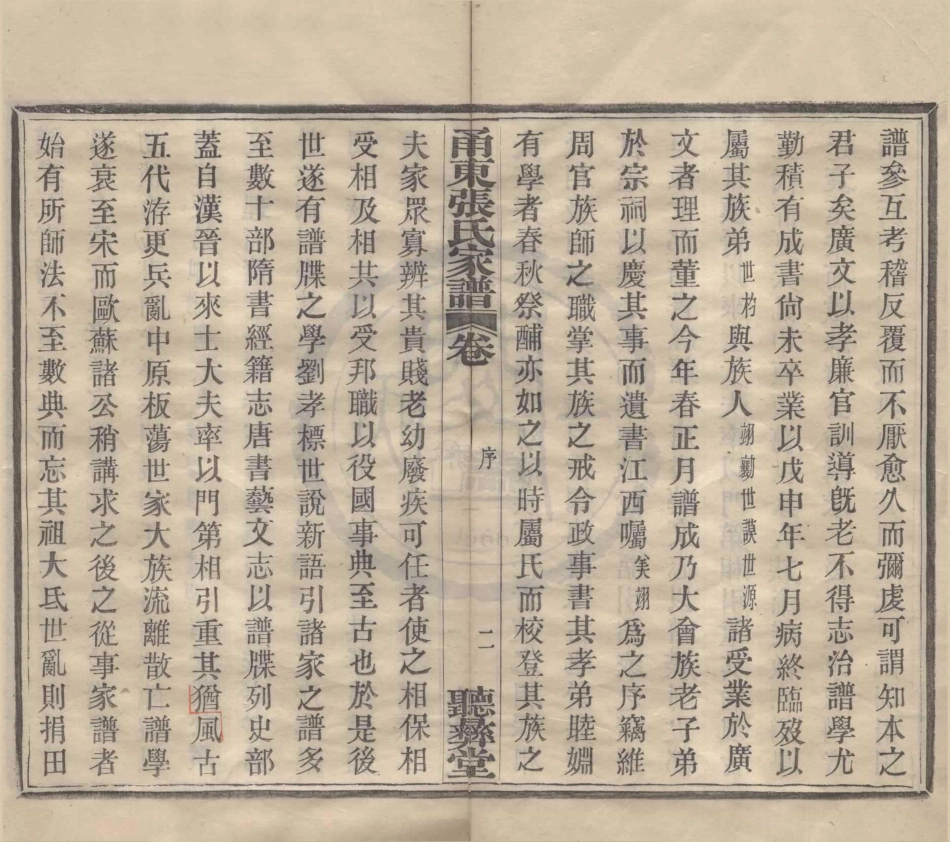 譜參互考稽反覆而不厭愈久而彌虔可謂知本之
君子矣廣文以孝廉官訓導旣老不得志治譜學尤
勤積有成書尙未卒業以戊申年七月病終臨歿以
屬其族弟世杓與族人翊勳世謨世源諸受業於廣
文者理而董之今年春正月譜成乃大會族老子弟
於宗祠以慶其事而遺書江西囑美翊爲之序竊維
周官族師之職掌其族之戒令政事書其孝弟睦婣
有學者春秋祭酺亦如之以時屬氏而校登其族之
甬東張氏家譜 卷 序 二 聽彝堂
夫家眾寡辨其貴賤老幼廢疾可任者使之相保相
受相及相共以受邦職以役國事典至古也於是後
世遂有譜牒之學劉孝標世說新語引諸家之譜多
至數十部隋書經籍志唐書藝文志以譜牒列史部
蓋自漢晉以來士大夫率以門第相引重其猶風古
五代洊更兵亂中原板蕩世家大族流離散亡譜學
遂衰至宋而歐蘇諸公稍講求之後之從事家譜者
始有所師法不至數典而忘其祖大氐世亂則捐田